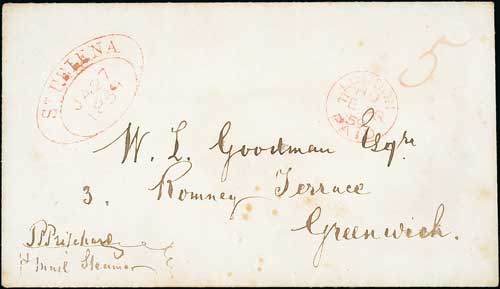 ST HELENA
JA 27
5
PAID
W. L. Goodman Esqre
3. Romney Terrace
Greenwich.
Pritchard
Mail Steamer